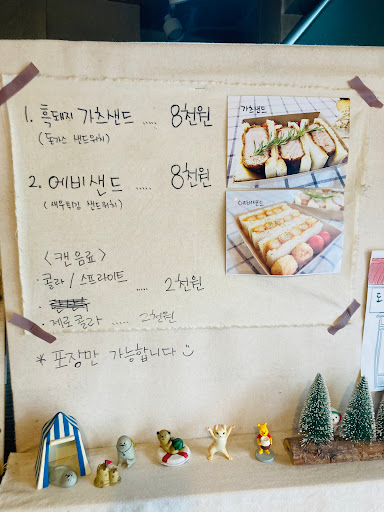 1. 흑돼지 가츠샌드 ..... 8천원
(돈가스 샌드위치)
가츠샌드
2. 에비샌드 ..... 8천원
(새우튀김 샌드위치)
에비샌드
<캔음료>
· 콜라 / 스프라이트 ..... 2천원
· 제로콜라 ..... 2천원
* 포장만 가능합니다
도